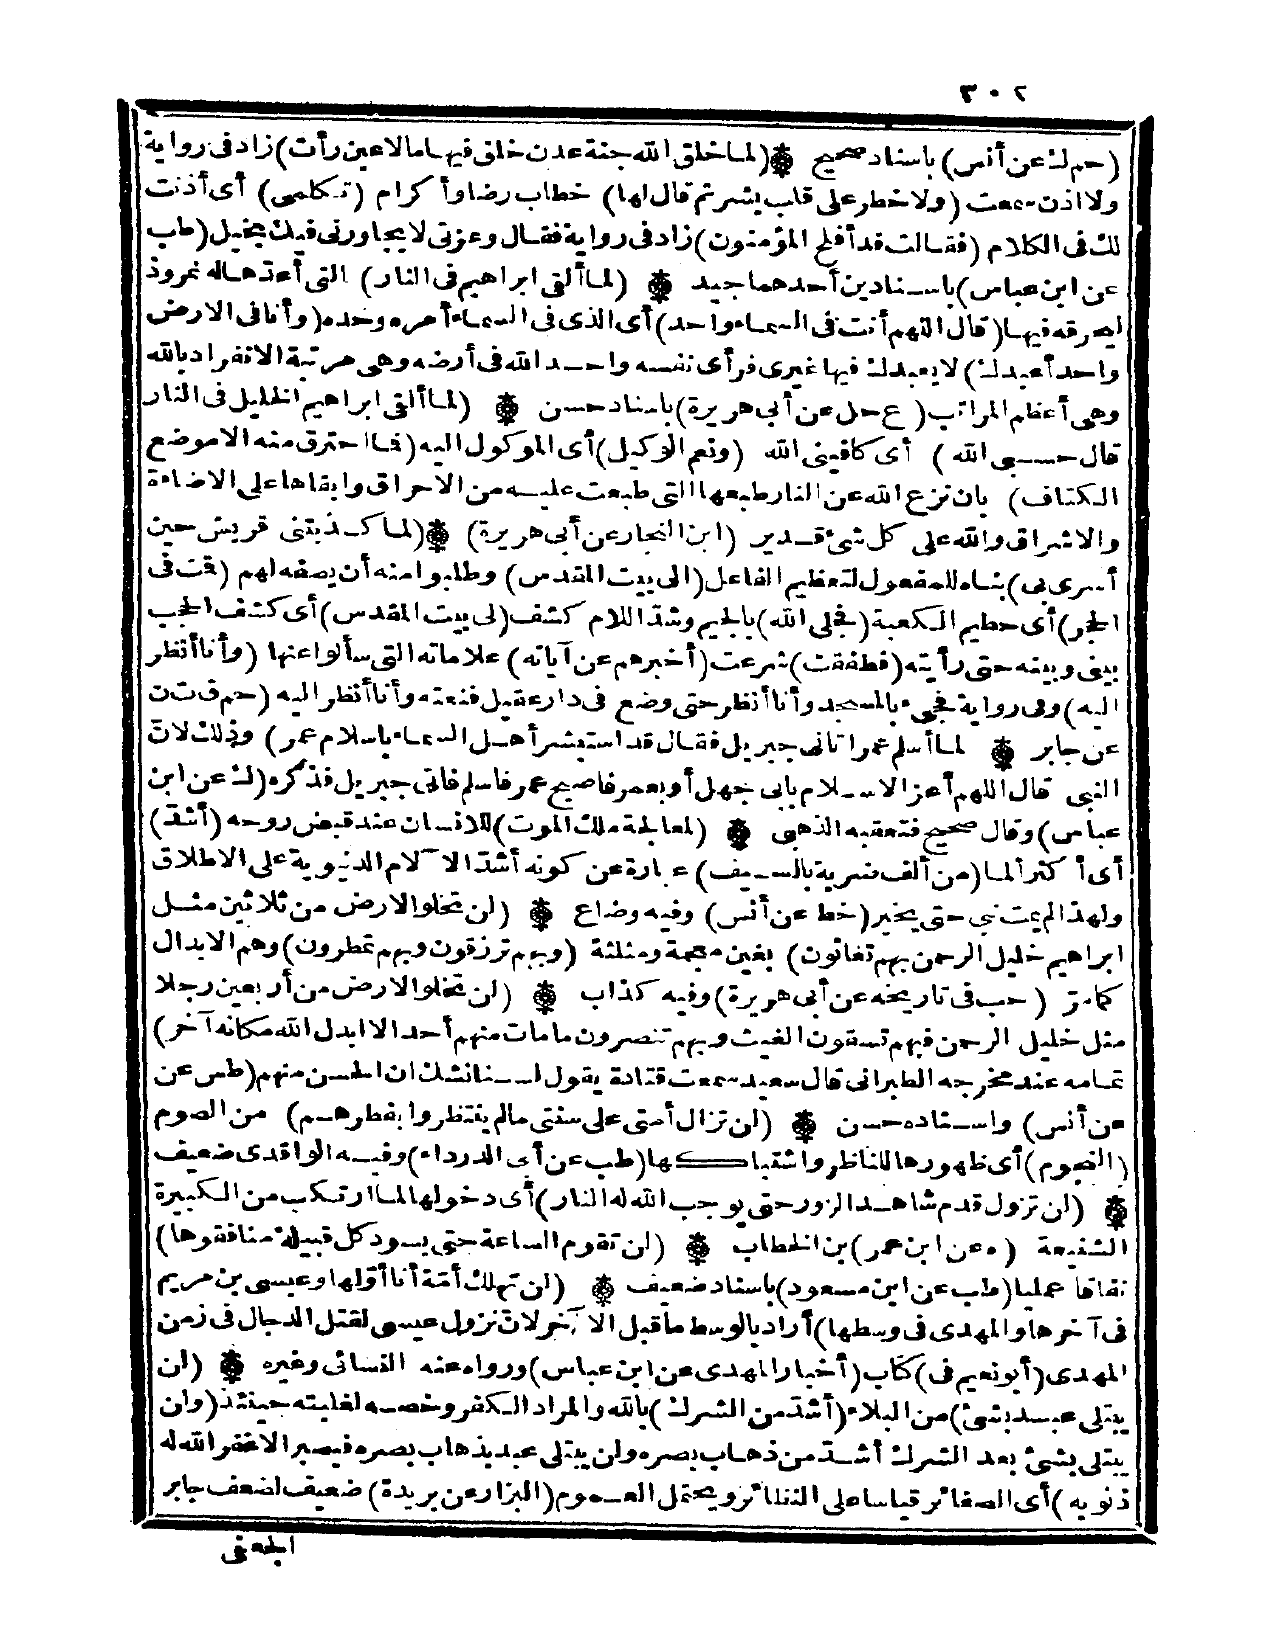 ٣٠٢
(حم ك عن أنس) باسناد صحيح ۞ (لما خلق الله جنة عدن خلق فيها ما لا عين رأت) زاد فى رواية
ولا اذن سمعت (ولا خطر على قلب بشر ثم قال لها) خطاب رضا وأكرام (تكلمى) أى أذنت
لك فى الكلام (فقالت قد أفلح المؤمنون) زاد فى رواية فقال وعزتى لا يجاورنى فيك بخيل (طب
عن ابن عباس) باسنادين أحدهما جيد ۞ (لما ألقى ابراهيم فى النار) التى أعدها له نمروذ
ليحرقه فيها (قال اللهم أنت فى السماء واحد) أى الذى فى السماء أمره وحده (وأنا فى الارض
واحد أعبدك) لا يعبدك فيها غيرى فرأى نفسه واحد الله فى أرضه وهى مرتبة الانفراد بالله
وهى أعظم المراتب (ع حل عن أبى هريرة) باسناد حسن ۞ (لما ألقى ابراهيم الخليل فى النار
قال حسبى الله) أى كافينى الله (ونعم الوكيل) أى الموكول اليه (فما احترق منه الا موضع
الكتاف) بان نزع الله عن النار طبعها التى طبعت عليه من الاحراق وابقاها على الاضاءة
والاشراق والله على كل شئ قدير (ابن النجار عن أبى هريرة) ۞ (لما كذبتنى قريش حين
أسرى بى) بناه للمفعول لتعظيم الفاعل (الى بيت المقدس) وطلبوا منه أن يصفه لهم (قمت فى
الحجر) أى حطيم الكعبة (فجلى الله) بالجيم وشد اللام كشف (لى بيت المقدس) أى كشف الحجب
بينى وبينه حتى رأيته (فطفقت) شرعت (أخبرهم عن آياته) علاماته التى سألوا عنها (وأنا أنظر
اليه) وفى رواية فجىء بالمسجد وأنا أنظر حتى وضع فى دار عقيل فنعته وأنا أنظر اليه (حم ق ت ن
عن جابر ۞ لما أسلم عمر اتانى جبريل فقال قد استبشر أهل السماء باسلام عمر) وذلك لان
النبى قال اللهم أعز الاسلام بابى جهل أو بعمر فاصبح عمر فاسلم فاتى جبريل فذكره (ك عن ابن
عباس) وقال صحيح فتعقبه الذهبى ۞ (لمعالجة ملك الموت) للانسان عند قبض روحه (أشد)
أى أكثر ألما (من ألف ضربة بالسيف) عبارة عن كونه أشد الآلام الدنيوية على الاطلاق
ولهذا لم يمت نبى حتى يخير (خط عن أنس) وفيه وضاع ۞ (لن تخلو الارض من ثلاثين مثل
ابراهيم خليل الرحمن بهم تغاثون) بغين معجمة ومثلثة (وبهم ترزقون وبهم تمطرون) وهم الابدال
كما مر (حب فى تاريخه عن أبى هريرة) وفيه كذاب ۞ (لن تخلو الارض من أربعين رجلا
مثل خليل الرحمن فبهم تسقون الغيث وبهم تنصرون ما مات منهم أحد الا ابدل الله مكانه آخر)
تمامه عند مخرجه الطبرانى قال سعيد سمعت قتادة يقول لسنا نشك ان الحسن منهم (طس عن
عن أنس) واسناده حسن ۞ (لن تزال أمتى على سنتى ما لم ينتظروا بفطرهم) من الصوم
(النجوم) أى ظهورها للناظر واشتباكها (طب عن أبى الدرداء) وفيه الواقدى ضعيف
۞ (لن تزول قدم شاهد الزور حتى يوجب الله له النار) أى دخولها لما ارتكب من الكبيرة
الشنيعة (ه عن ابن عمر) بن الخطاب ۞ (لن تقوم الساعة حتى يسود كل قبيلة منافقوها)
نفاقا عمليا (طب عن ابن مسعود) باسناد ضعيف ۞ (لن تهلك أمة أنا أولها وعيسى بن مريم
فى آخرها والمهدى فى وسطها) أراد بالوسط ما قبل الآخر لان نزول عيسى لقتل الدجال فى زمن
المهدى (أبو نعيم فى) كتاب (أخبار المهدى عن ابن عباس) ورواه عنه النسائى وغيره ۞ (لن
يبتلى عبد بشئ) من البلاء (أشد من الشرك) بالله والمراد الكفر وخصه لغلبته حينئذ (ولن
يبتلى بشئ بعد الشرك أشد من ذهاب بصره ولن يبتلى عبد بذهاب بصره فيصبر الا غفر الله له
ذنوبه) أى الصغائر قياسا على النظائر ويحتمل العموم (البزار عن بريدة) ضعيف لضعف جابر
الجعفى